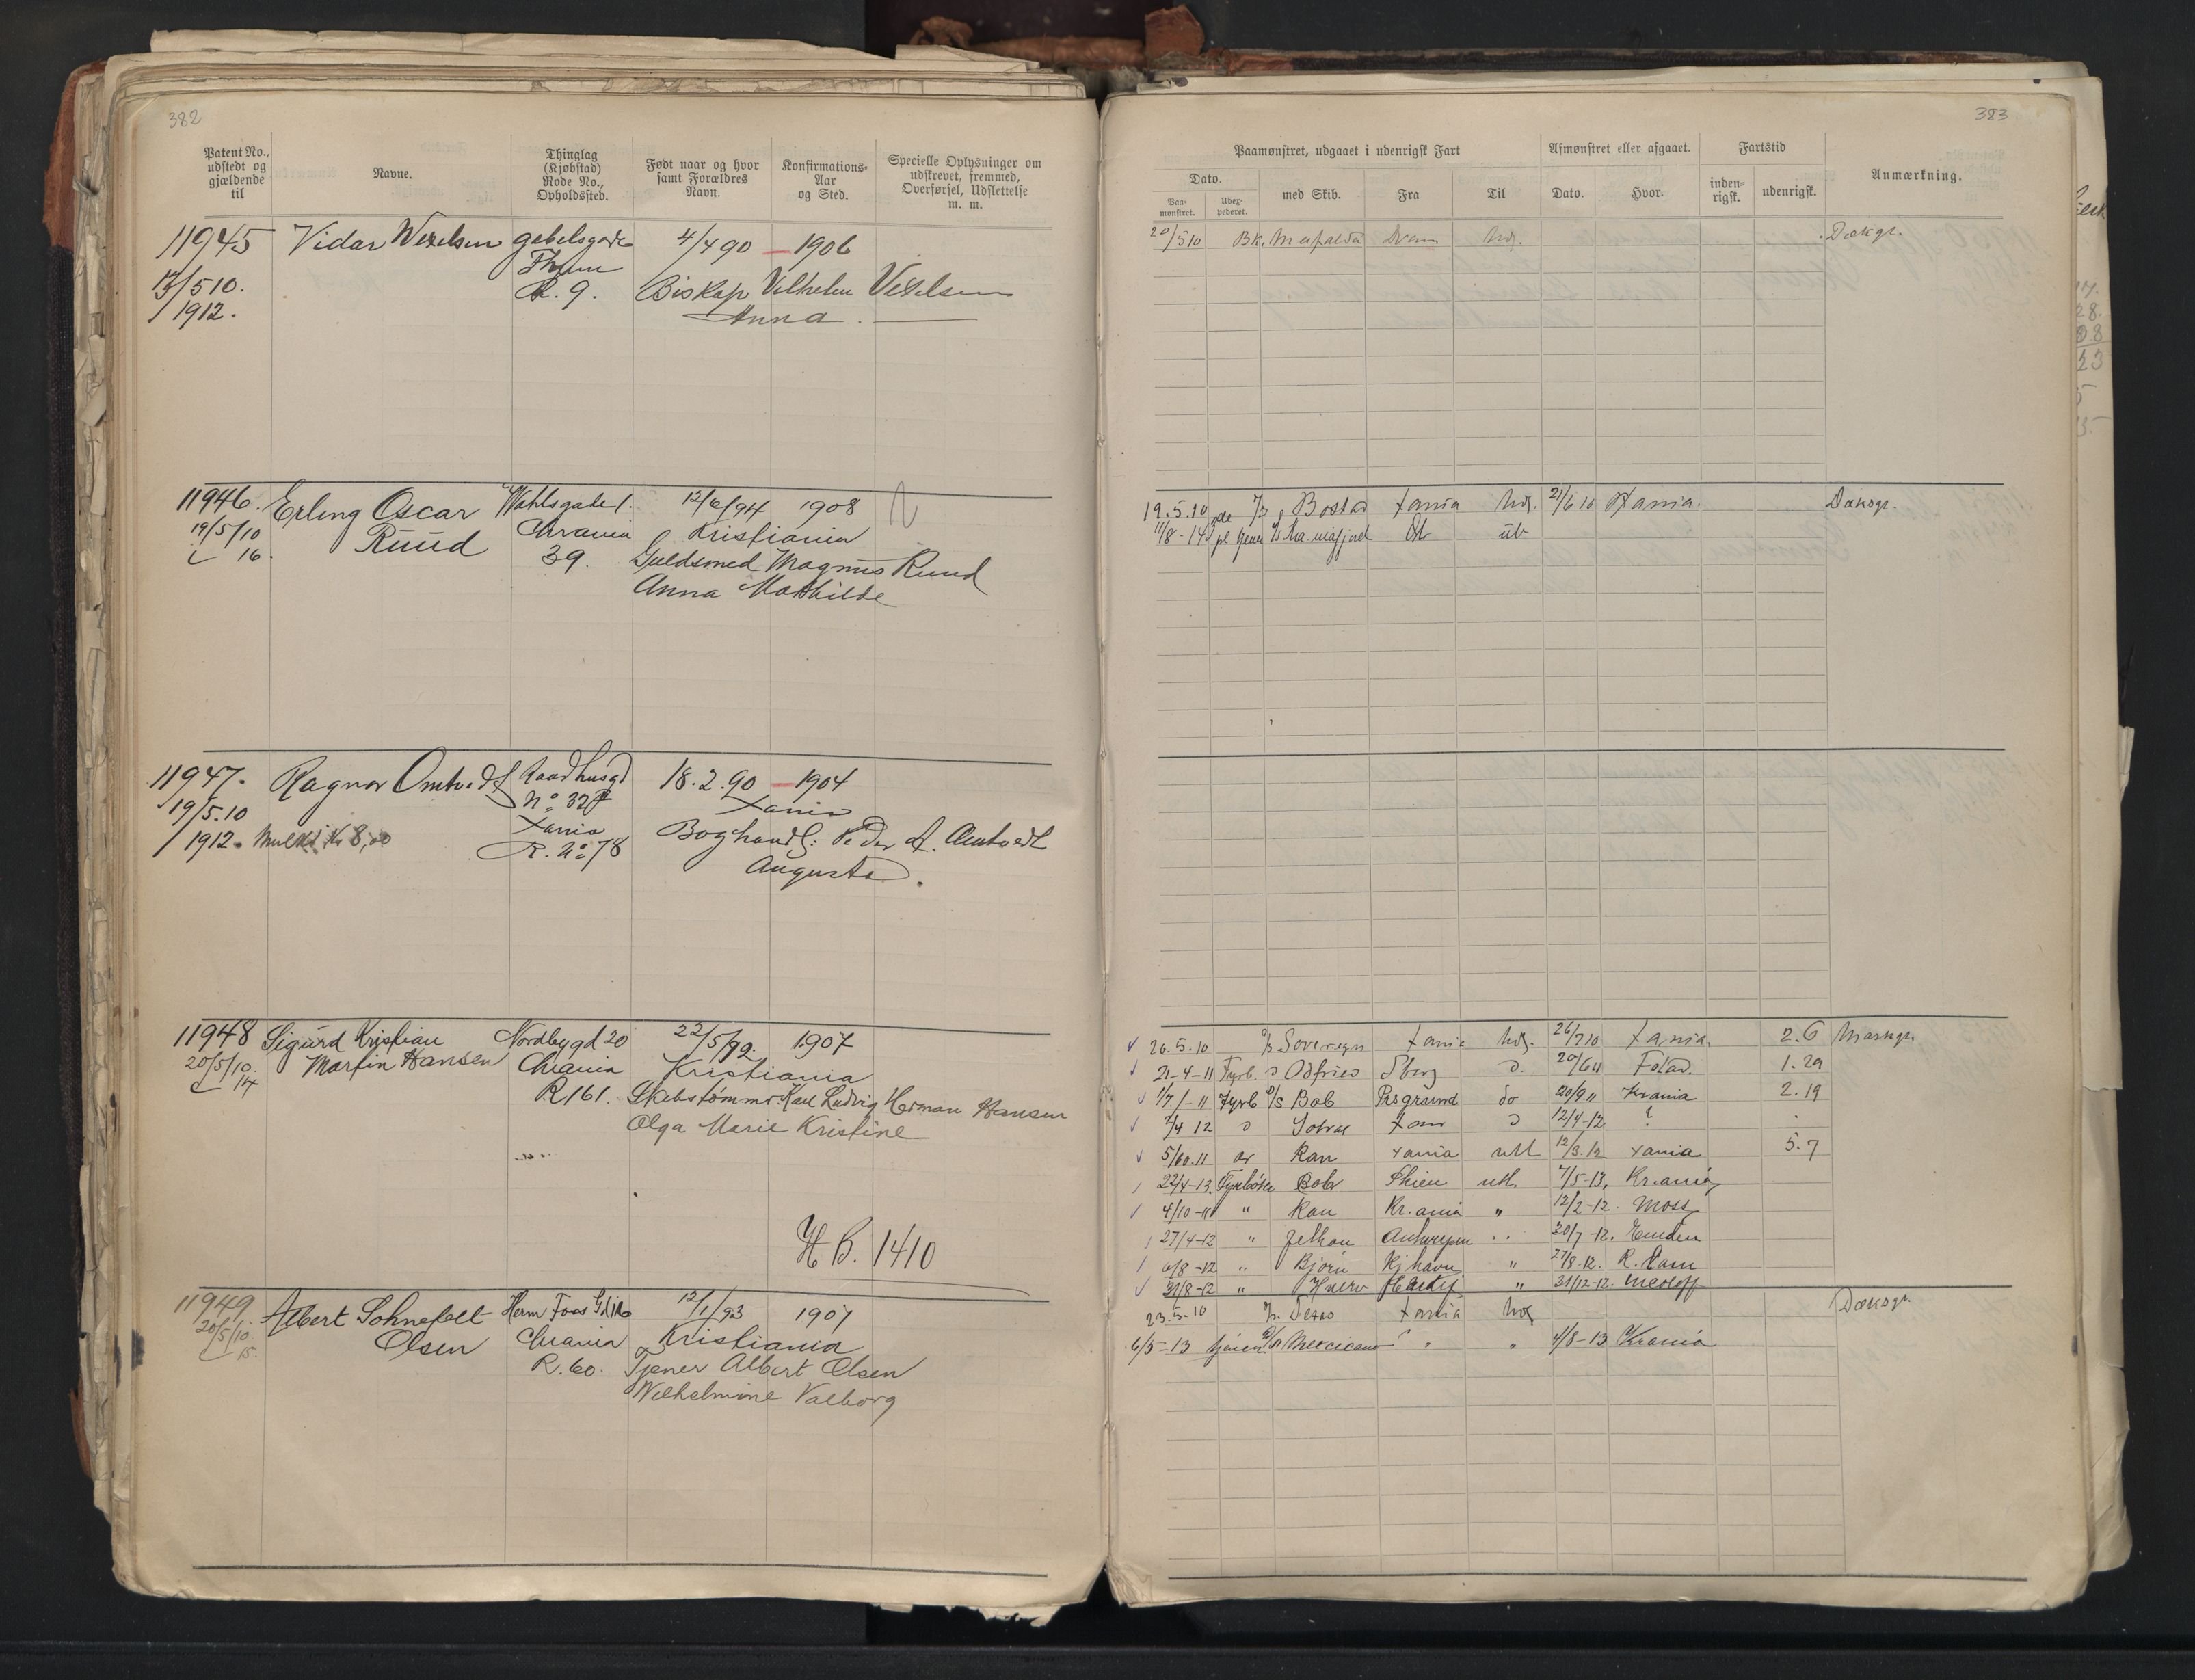 382
Patent No., udstedt og gjældende til
Navne.
Thinglag (Kjøbstad) Rode No., Opholdssted.
Født naar og hvor samt Forældres Navn.
Konfirmations-Aar og Sted.
Specielle Oplysninger om udskrevet, fremmed, Overførsel, Udslettelse m. m.
11945 Vidar Wexelsen gabelsgade 4/4 90 — 1906
Thjem
13/5 10. R. 9. Biskop Vilhelm Vexelsen
/1912. Anna
11946. Erling Oscar Wahlsgade 1. 12/6/94 1908
19/5/10 Ruud Chrania Kristiania
16. 39. Guldsmed Magnus Ruud
Anna Mathilde
11947. Ragnar Omtvedt Raadhusgd 18.2.90 — 1904
19/5.10 No 32 Xania
/1912. Mulkt Kr 8,00 Xania Boghandl: Peder A. Omtvedt
R. No 78 Augusta.
11948 Sigurd Kristian Nordbygd 20 22/5/92. 1907
20/5/10. Martin Hansen Chrania Kristiania
14 R 161. Skibstømmr. Karl Ludvig Herman Hansen
Olga Marie Kristine
H B. 1410
11949 Albert Sohnefelt Herm Foss Gd 12/1/93 1907
20/5/10. Olsen Chrania Kristiania
15. R. 60. Tjener Albert Olsen
Wilhelmine Valborg
383
Paamønstret, udgaaet i udenrigsk Fart
Afmønstret eller afgaaet.
Fartstid
Anmærkning.
Dato.
Paa-mønstret.
Uder-pederet.
med Skib.
Fra
Til
Dato.
Hvor.
inden-rigsk.
udenrigsk.
20/5 10 Bk. Mafalda Dram Udg. Dækgt.
19.5.10 Boston Xania Udg. 21/6 10 Xania. Dæksgt.
11/8-14
26.5.10 Sovereign Xania Udg. 26/7 10 Xania. 2.6 Maskgt.
21-4-11 Fyrb. Odfried Sberg 20/6 11 1.29
Fyrb D/S Bob Porsgrund do 20/9 11 Krania 2.19
4/4 12 Xania 12/4-12 ?
5/10.11 Ran Xania utl 12/3.12 Xania 5.7
22/4-13. Fyrbøter Bob Skien utl. 7/5-13, Kr.ania
4/10-11 " Ran Kr.ania " 12/2-12. Moss
27/4-12 " Antwerpen 30/7-12. Emden
6/8-12 " Bjørn Kjhavn " 27/8-12. R. Dam
31/8-12 " " 31/12-12.
23.5.10 Xania Udg Dæksgt.
6/5-13 Mexicano " " 4/8-13 Krania